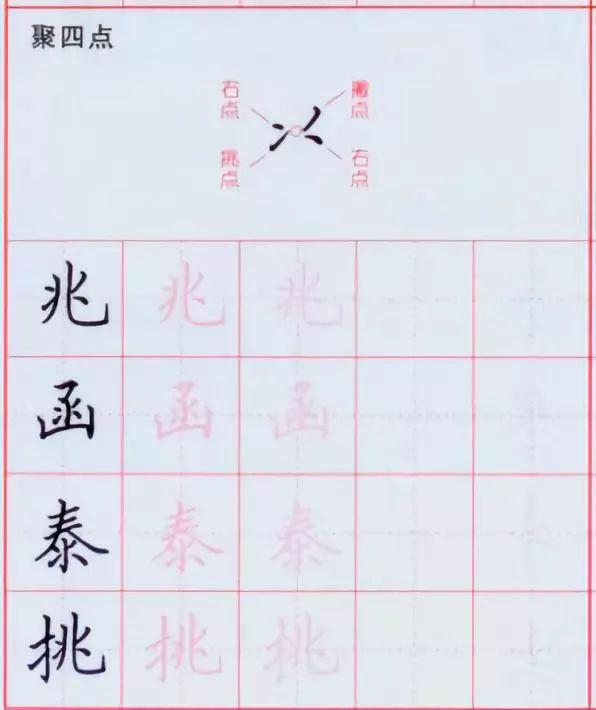 聚四点
右点
撇点
挑点
右点
兆 兆 兆
函 函 函
泰 泰 泰
挑 挑 挑